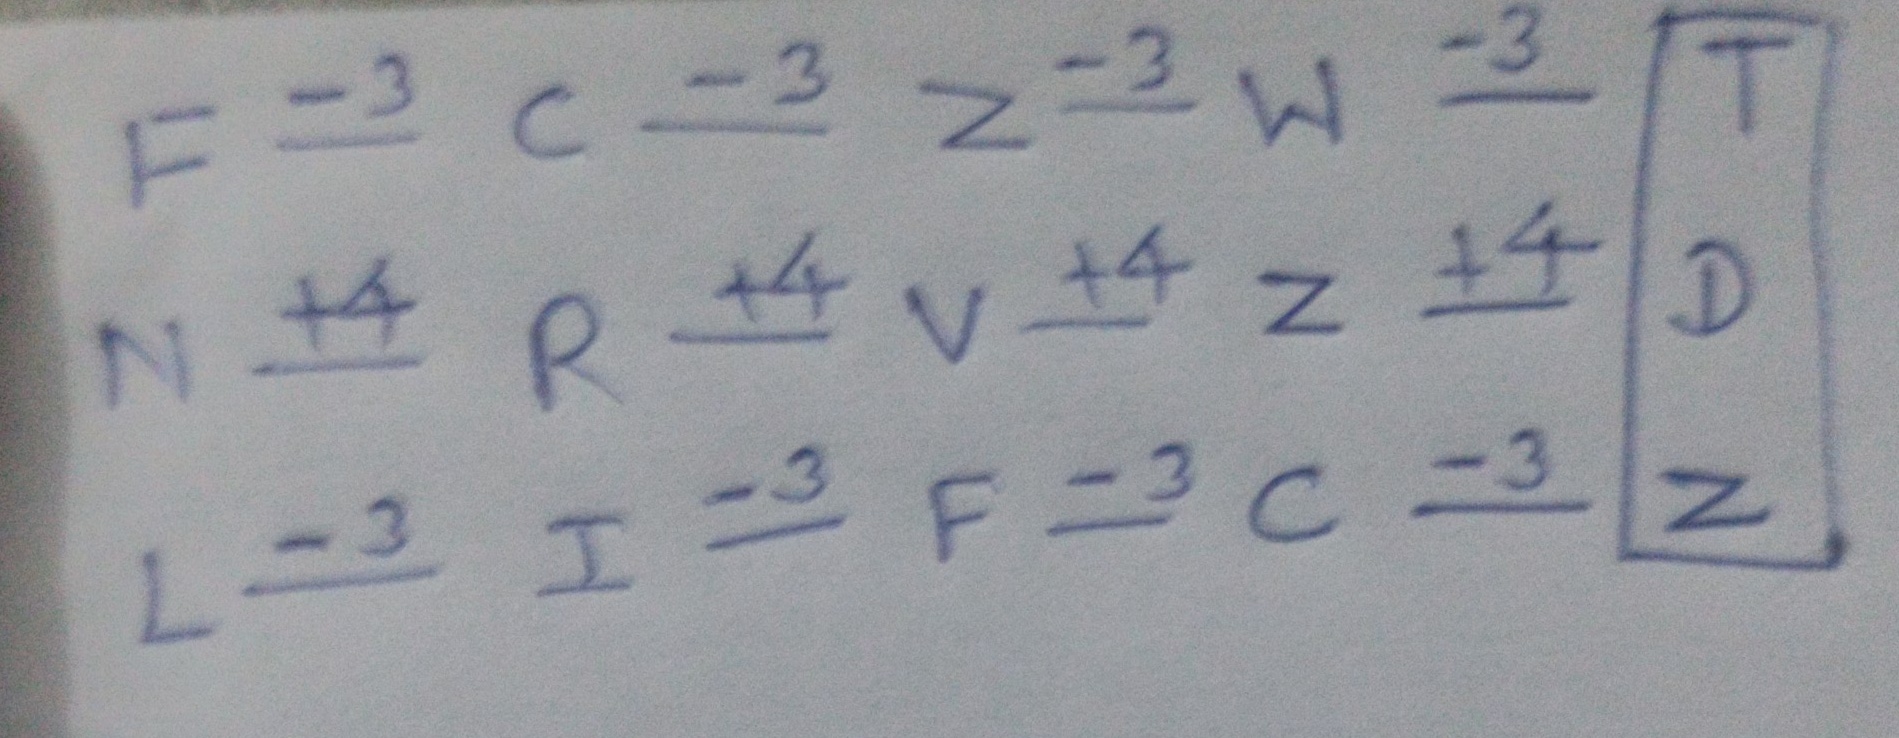 F -3 C -3 Z -3 W -3 T
N +4 R +4 V +4 Z +4 D
L -3 I -3 F -3 C -3 Z